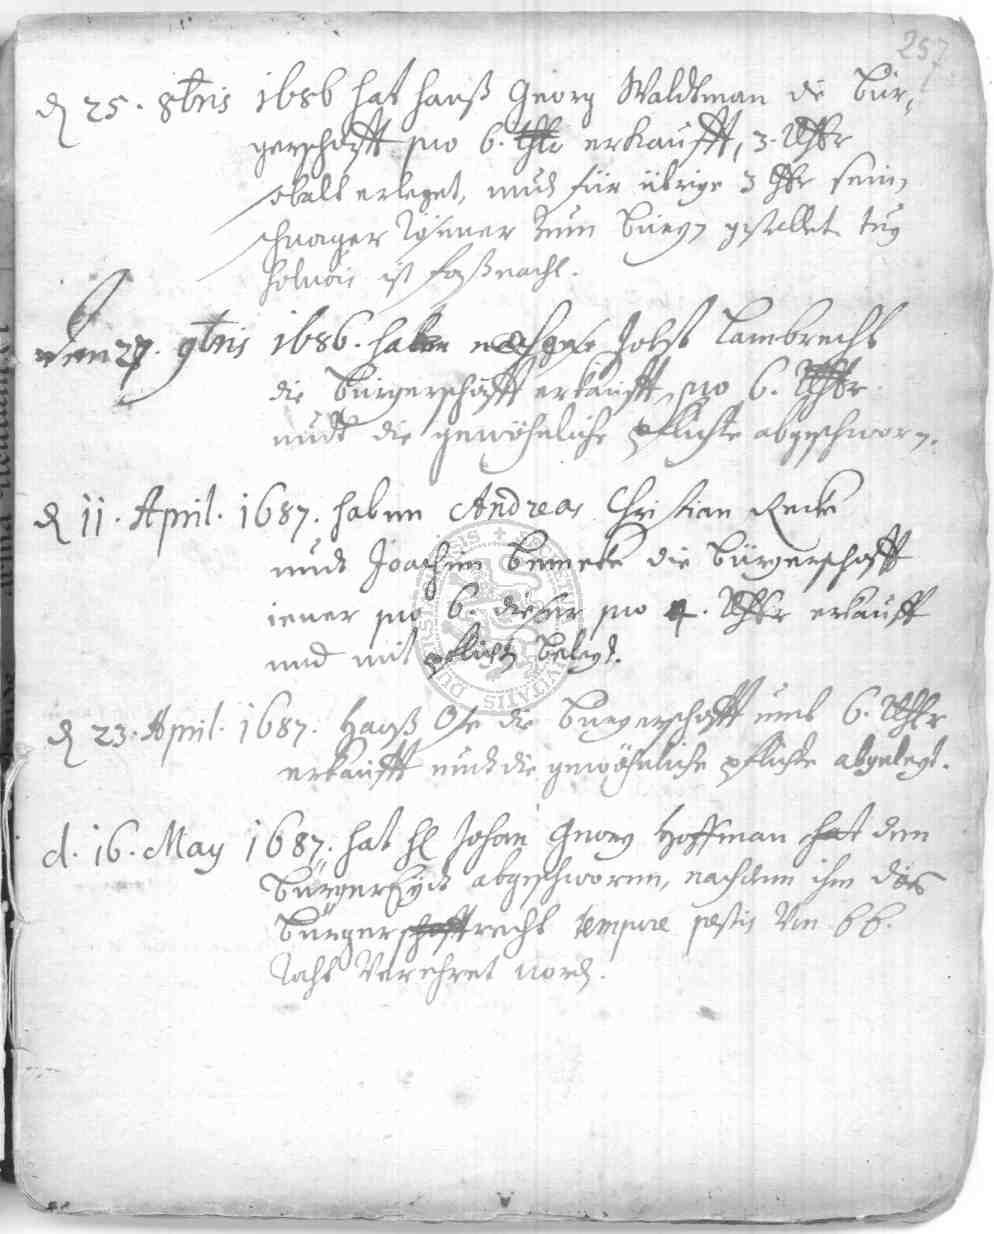 257
d 25. 8bris 1686 hat Hanß Georg Waldtman die Bür-
gerschafft pro 6. thlr erkaufft, 3. Rthlr
sobalt erleget, undt für übrige 3 thlr sein
schwager zum Bürgen gestellet
ist
den 27. 9bris 1686. Jobst Lambrecht
die Bürgerschafft erkaufft pro 6. Rthlr
undt die gewöhnliche pflichte abgeschworen.
d 11. April. 1687. haben Andreas Christian Recke
undt Joachim Beneke die Bürgerschafft
iener pro 6. dieser pro 4. Rthlr erkaufft
und mit pflicht belegt.
d 23. April. 1687. Hanß die Bürgerschafft umb 6. Rthlr
erkaufft undt die gewöhnliche pflichte abgelegt.
d. 16. May 1687. hat H Johan Georg Hoffman hat den
BürgerEydt abgeschworen, nachdem ihm das
Bürgerschafftrecht tempore pestis 66.
Verehret word.